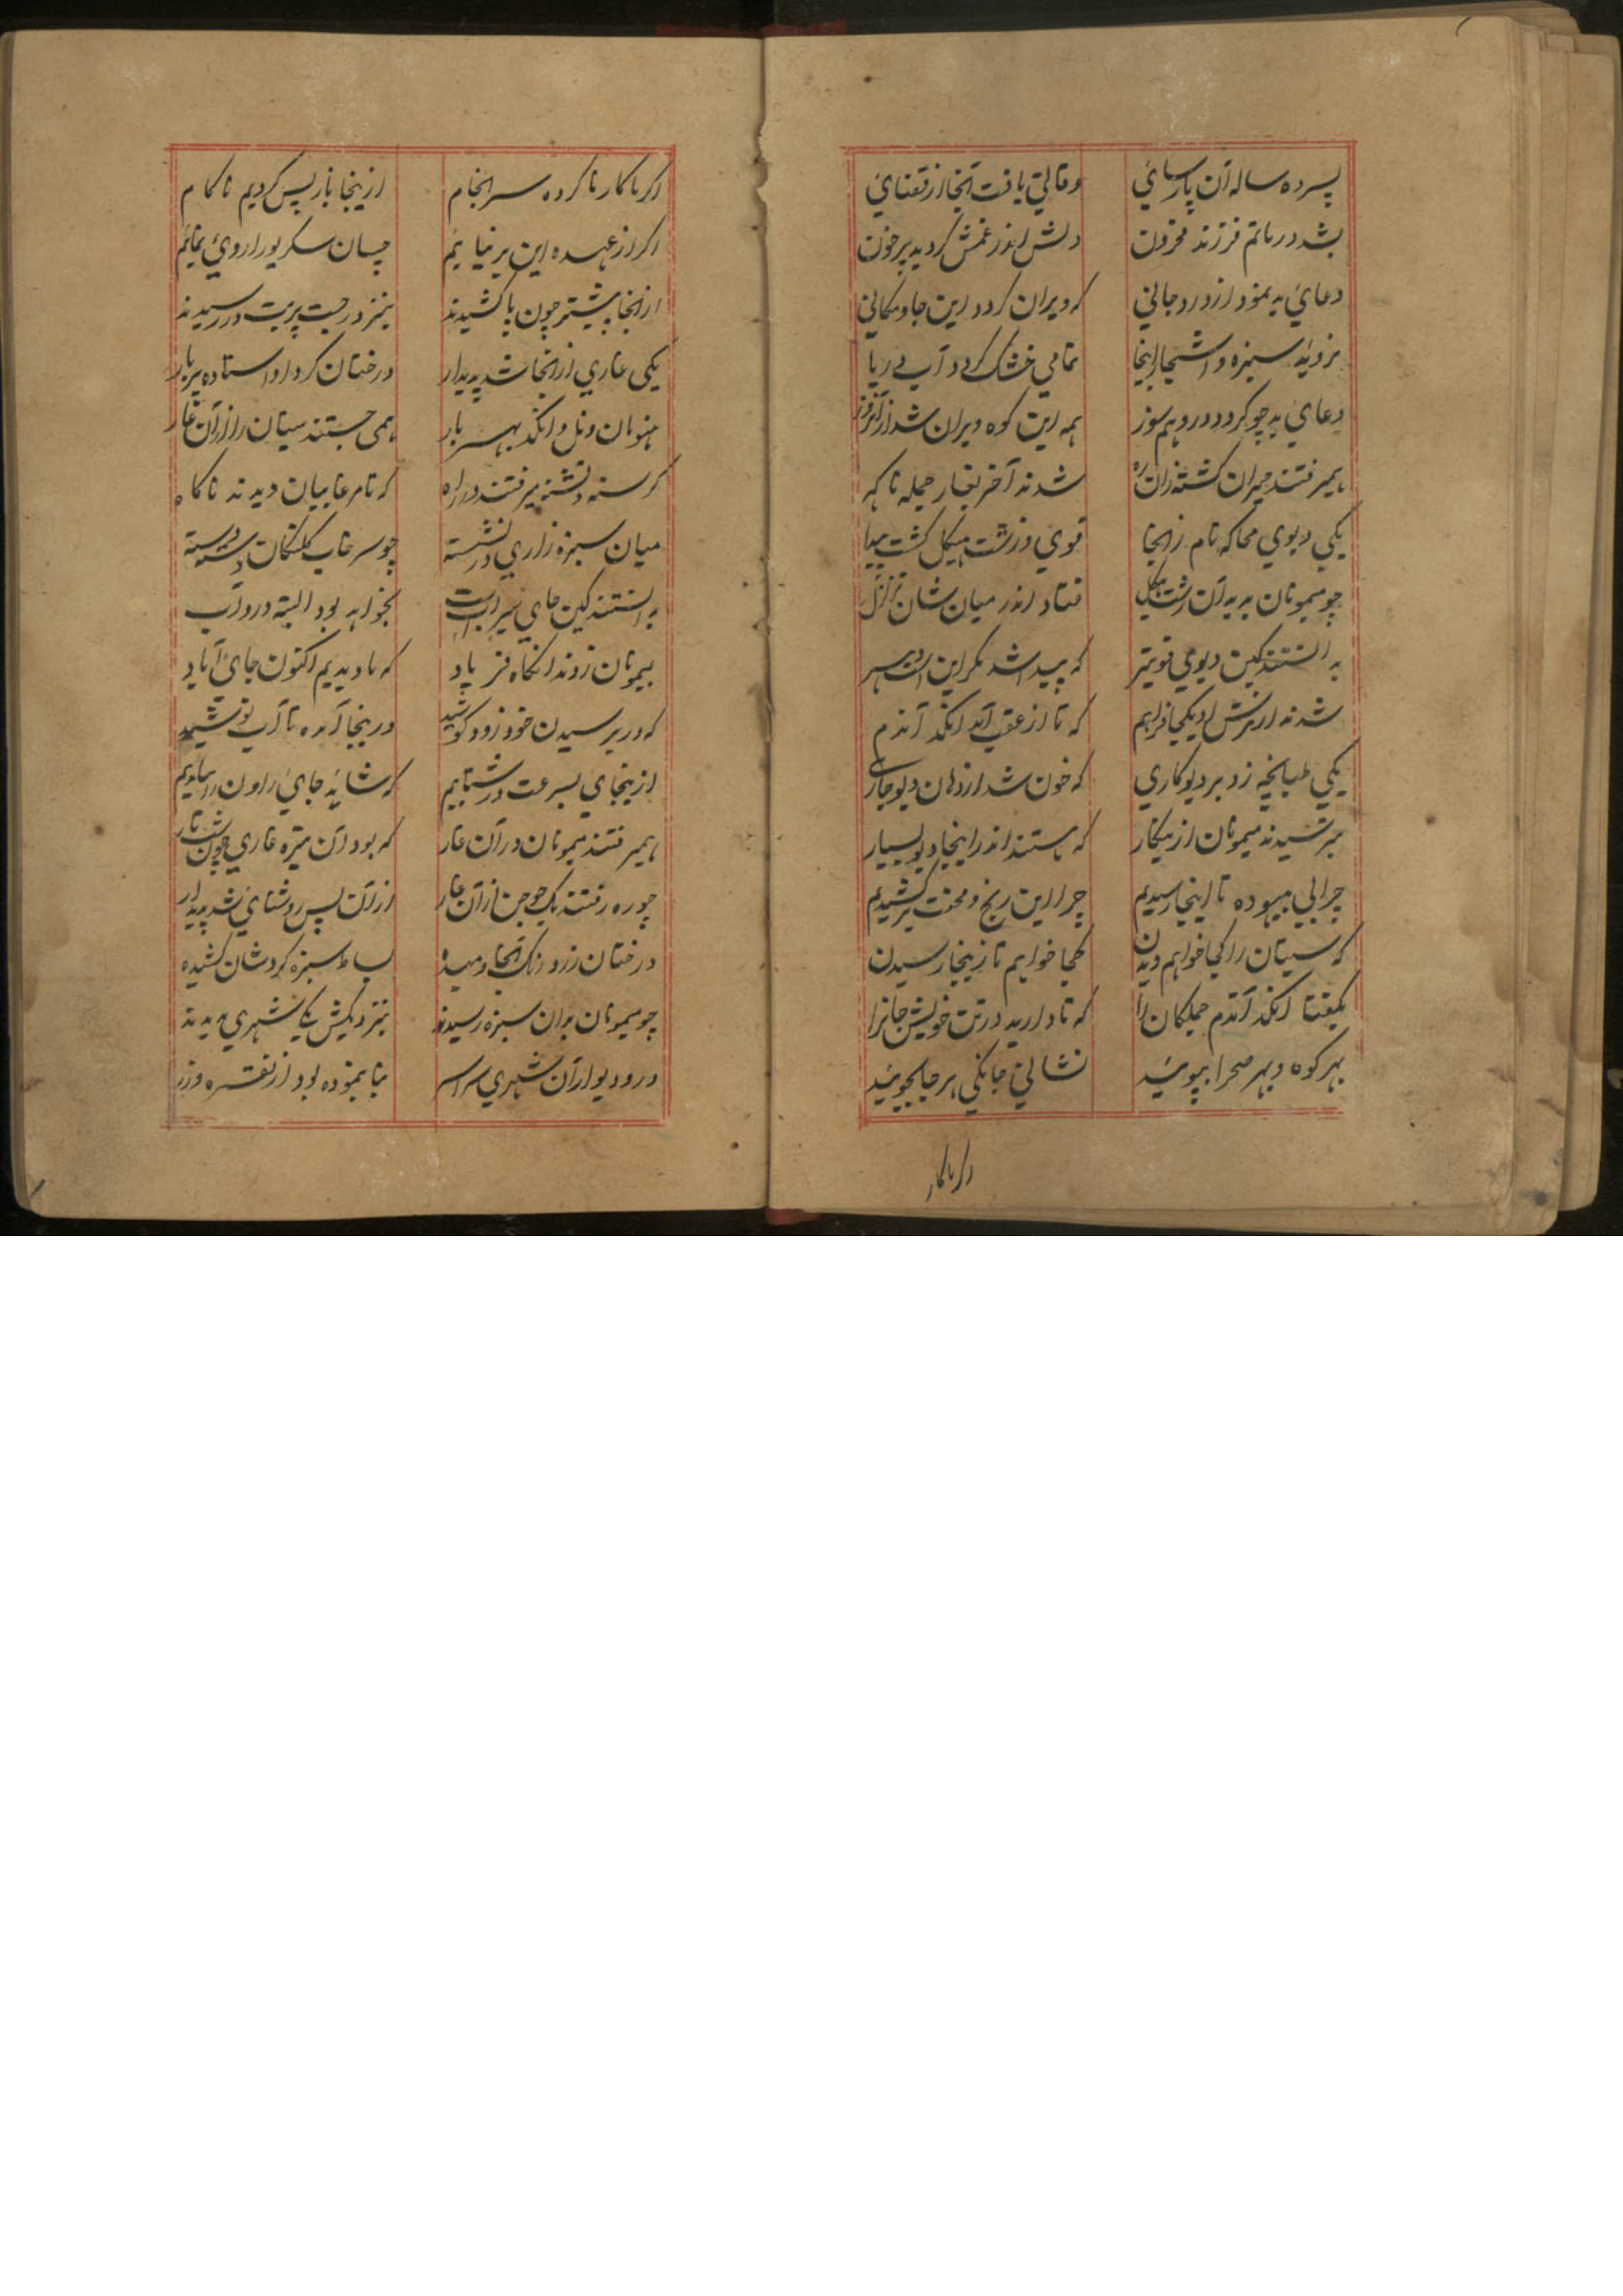 پسر ده ساله آن پارسائی وفاتی یافت آنجا از قضائی
بشد در ماتم فرزند محزون دلش اندر غمش گردید پر خون
دعائی بد نمود از درد جانی که ویران گردد این جا و مکانی
نروید سبزه و اشجار اینجا تمامی خشک گردد آب دریا
دعائی بد چو کرد و در دهم سوز همه این کوه ویران شد از آنروز
همیرفتند حیران گشته زان ره شدند آخر بغار جمله ناگه
یکی دیوی محاکه نام زانجا قوی و زشت هیکل گشت پیدا
چو میمونان بدید آن زشت هیکل فتاد اندر میان شان تزلزل
بدانستند کین دیوی قویتر که پیدا شد مگر این است ده سر
شدند از ترش او یکجا فراهم که تا از عقب آمد انگد آندم
یکی طپانچه زد بر دیو کاری که خون شد از دهان دیو جاری
بترسیدند میمونان ازین کار که هستند اندر اینجا دیو بسیار
چرا بی بیهوده تا اینجا رسیدیم چرا این رنج و محنت بر کشیدیم
که سیتان را کجا خواهیم دیدن کجا خواهیم تا زینجا رسیدن
بگفتا انگد آندم جملگان را که تا دارید در تن خویش جانرا
بهر کوه و بهر صحرا بپوئید نشانی جانکی هر جا بجوئید
اگر ما کار
اگر ما کار ناکرده سرانجام ازینجا باز پس گردیم ناکام
اگر از عهده این بر نیائیم چسان سکریو را روئی نمائیم
از انجا پیشتر چون پا کشیدند بنزد رجت پربت در رسیدند
یکی غاری از انجا شد پدیدار درختان گرد او استاده پر بار
هنومان و نل و انگد بهر بار همی جستند سیتان را از آن غار
گرسنه و تشنه میرفتند در راه که تا مرغابیان دیدند ناگاه
میان سبزه زاری در نشسته چو سرخاب کلنگان دسته دسته
بدانستند کین جای سیرابست بخواهد بود البته درو آب
بمیمونان زدند آنگاه فریاد که ما دیدیم اکنون جای آباد
که در بر رسیدن خود زود کوشید درینجا آمده تا آب نوشید
ازینجای بسرعت در شتابیم که شاید جای راون را بیابیم
همیرفتند میمونان در آن غار که بود آن تیره غاری چون شب تار
چو ره رفتند یک جوجن از آن غار از آن پس روشنائی شد پدیدار
درختان زرد رنگ آنجا دمیده بساط سبزه گردشان کشیده
چو میمونان بدان سبزه رسیدند بنزدیکش یکی شهری بدیدند
در و دیوار آن شهری سراسر بنا بنموده بود از نقره و زر